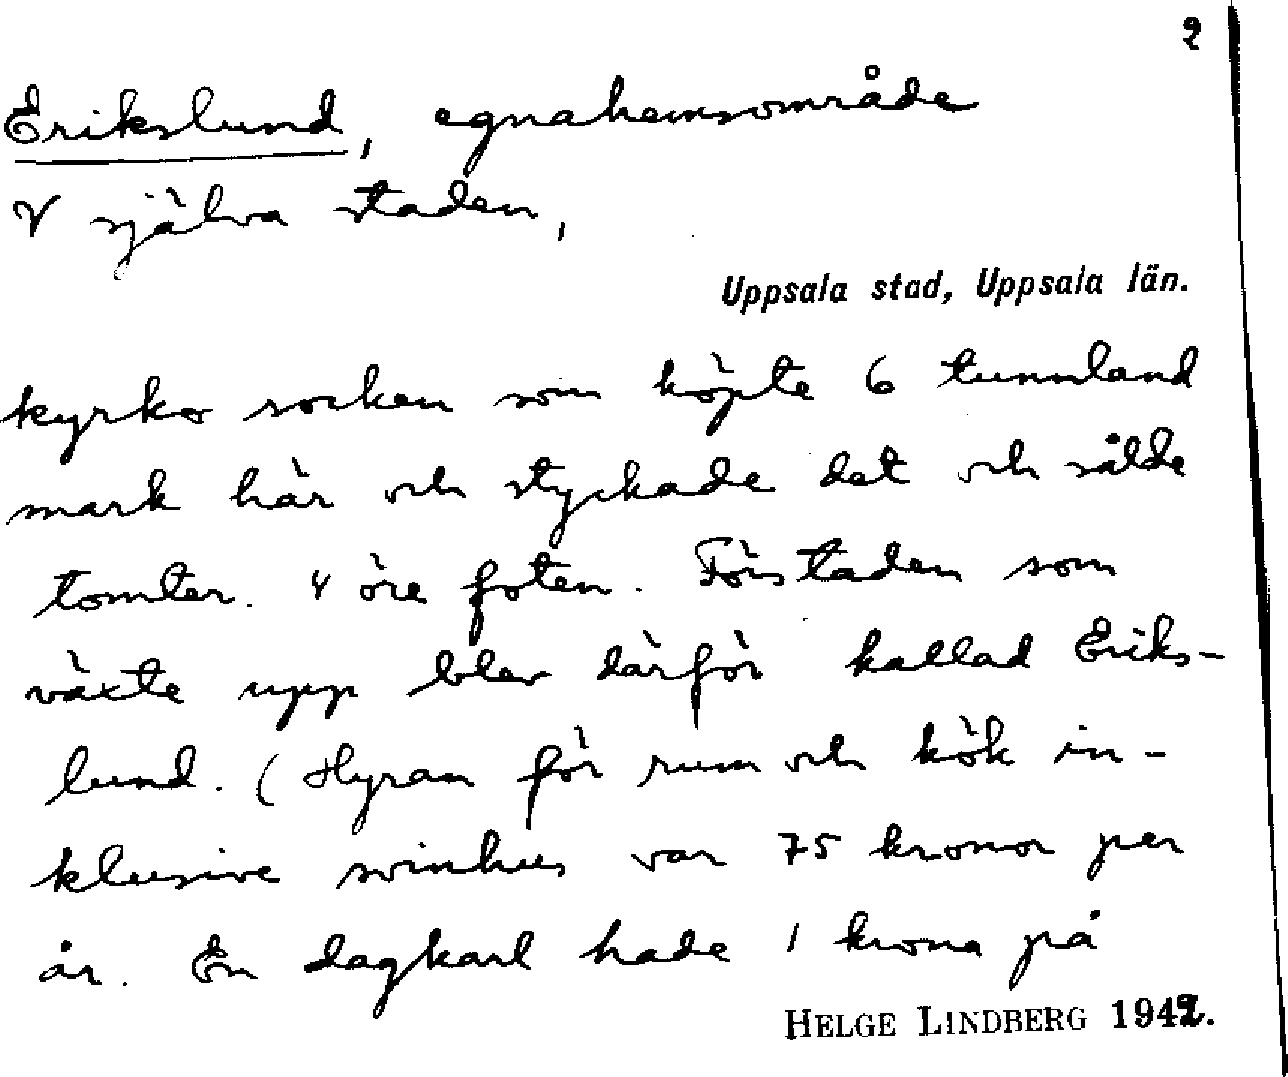 2
Erikslund, egnahemsområde
V själva staden,
Uppsala stad, Uppsala län.
kyrko socken som köpte 6 tunnland
mark här och styckade det och sålde
tomter. 4 öre foten. Förstaden som
växte upp blev därför kallad Eriks-
lund. (Hyran för rum och kök in-
klusive svinhus var 75 kronor per
år. En dagkarl hade 1 krona på
HELGE LINDBERG 1942.